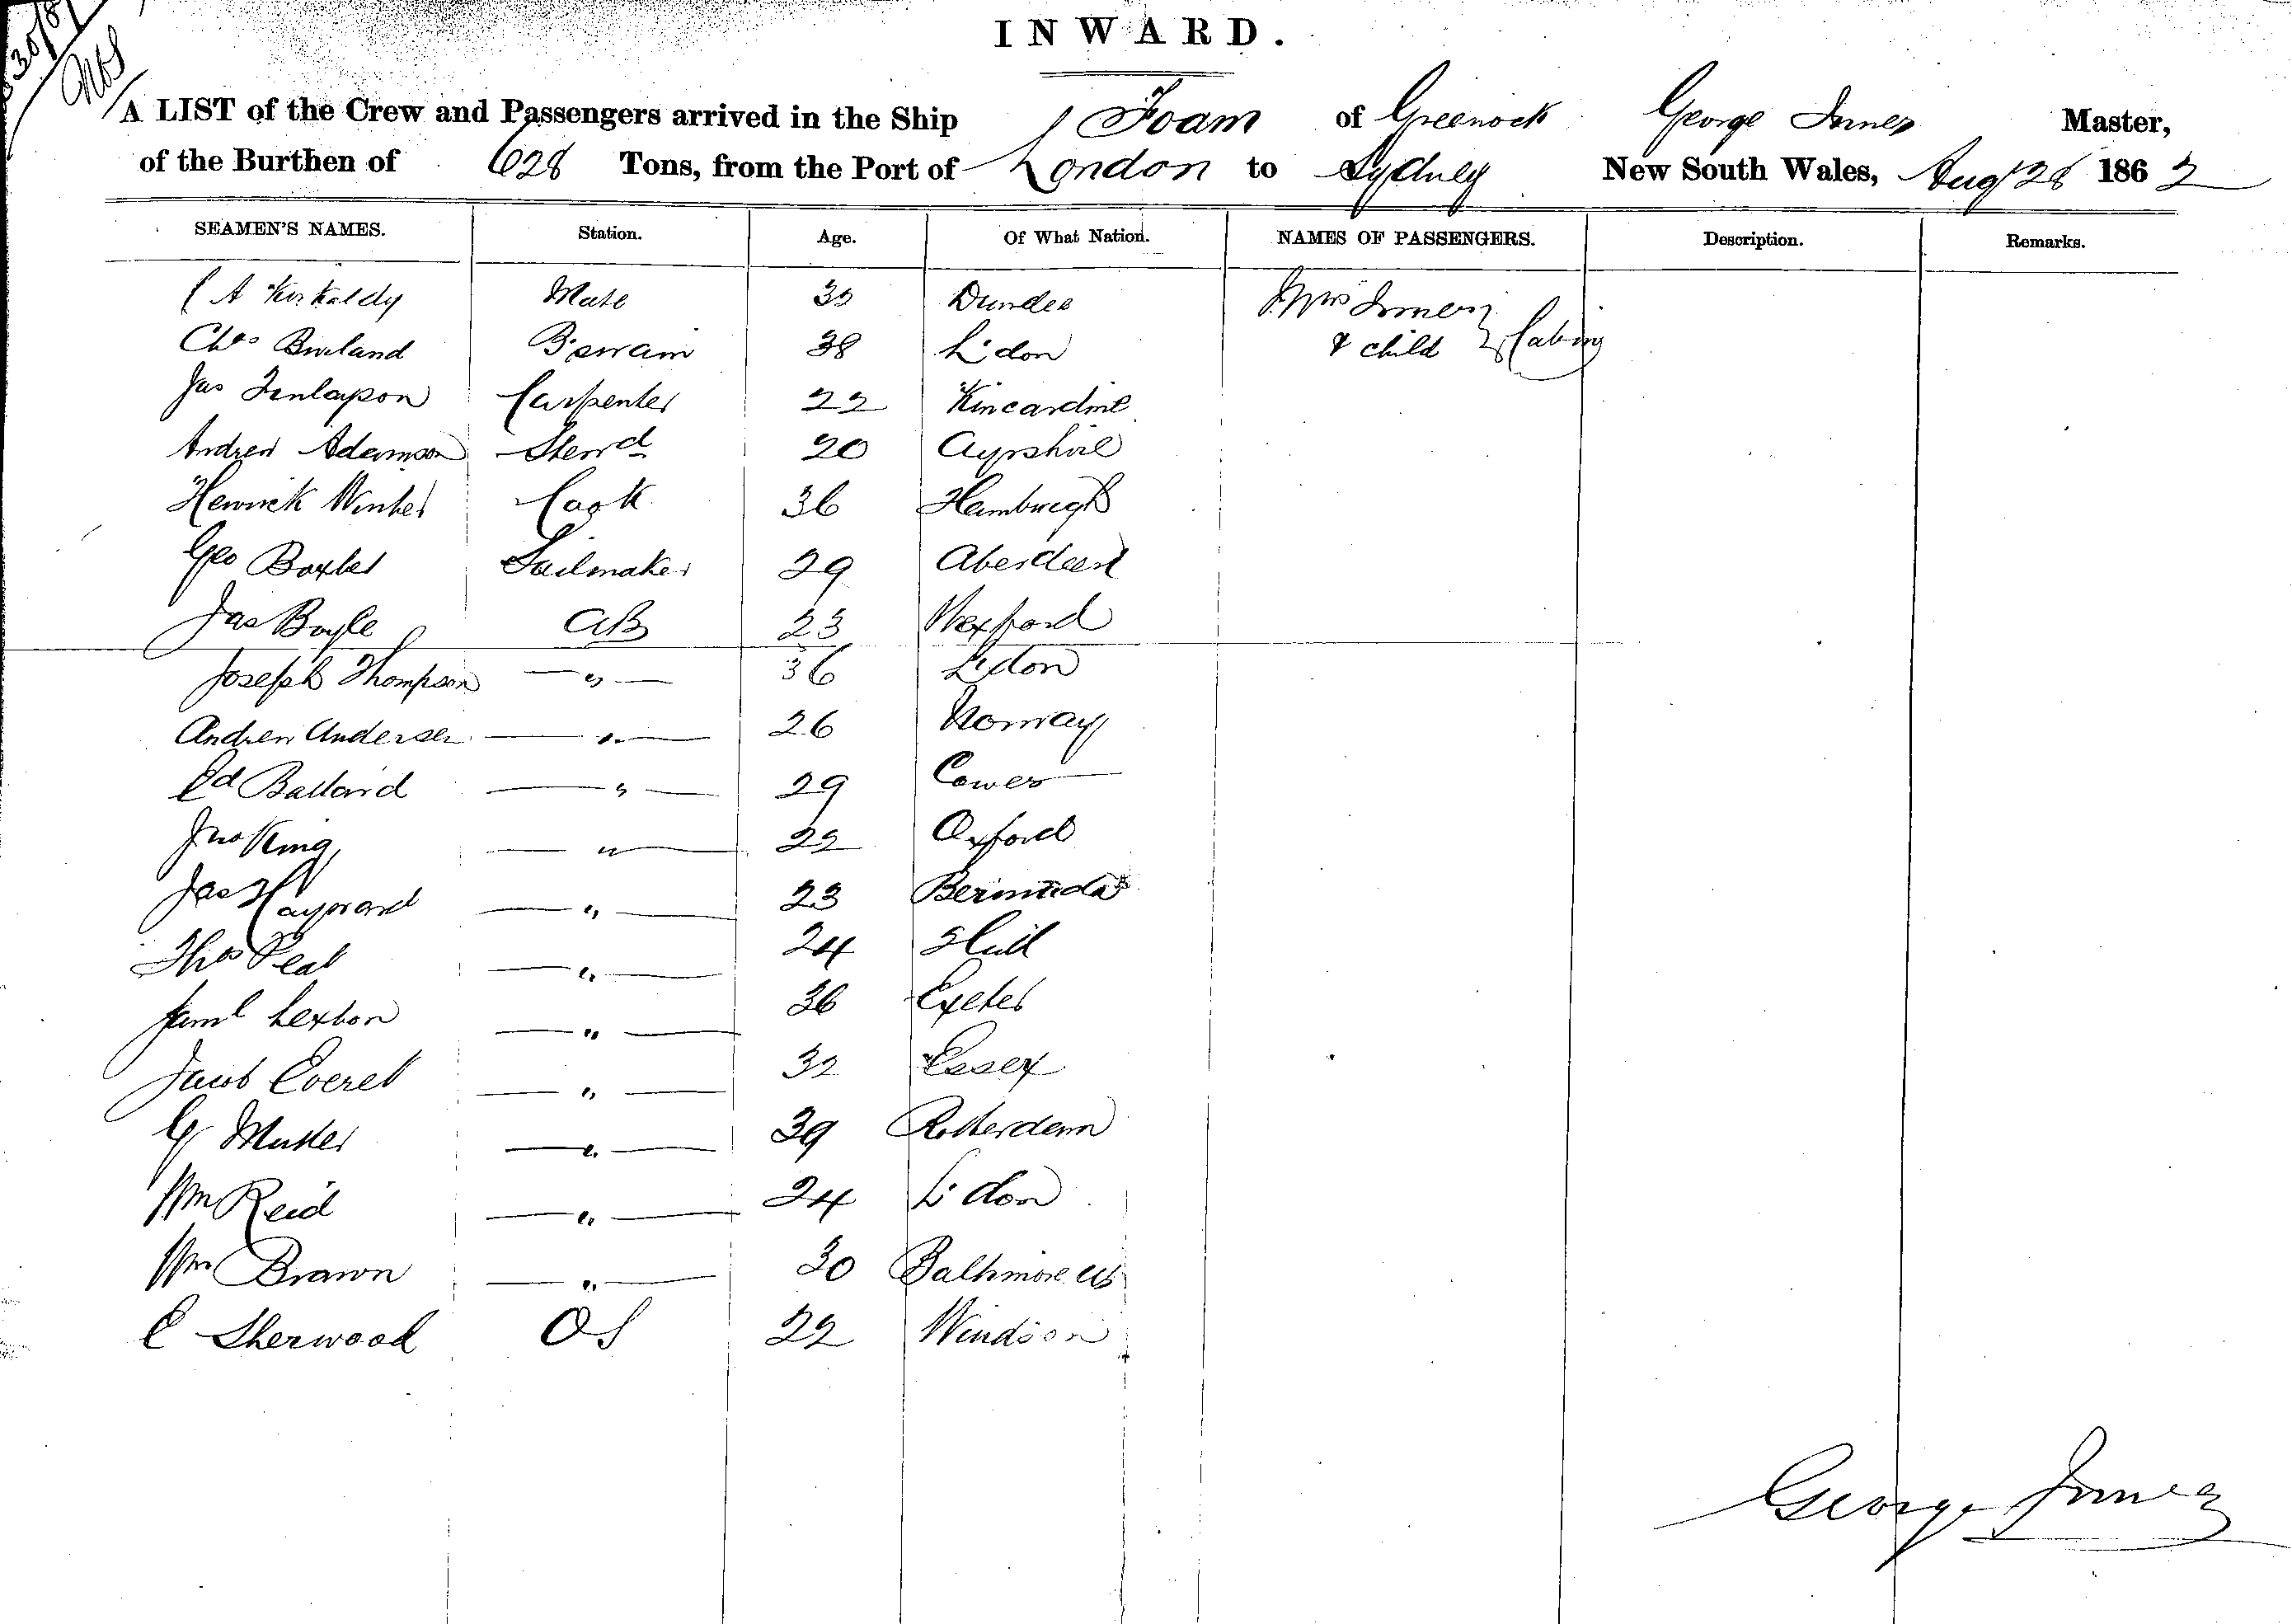 INWARD.
A LIST of the Crew and Passengers arrived in the Ship Foam of Greenock George Innes Master,
of the Burthen of 628 Tons, from the Port of London to Sydney New South Wales, Augt 28 1862
SEAMEN'S NAMES. Station. Age. Of What Nation. NAMES OF PASSENGERS. Description. Remarks.
A Kirkaldy Mate Dundee Mrs Innes
Chas 38 Ldon & child Cabin
Jas Finlayson Carpenter 22 Kincardine
Andrew Adamson Stewd 20 Ayrshire
Cook 36
Geo Sailmaker 29 Aberdeen
Jas Boyle AB 23 Wexford
Joseph Thompson — " — 36 Ldon
Andrew Andersen — " — 26 Norway
Ed Ballard — " — 29 Cowes
Jno King — " — 22 Oxford
Jas Hayward — " — 23 Bermuda
Thos Peat — " — 24 Hull
Saml Lexton — " — 36 Exeter
Jacob Everet — " — 32 Essex
G — " — 39 Rotterdam
Wm Reid — " — 24 Ldon
Wm Brown — " — 30 Baltimore US
E Sherwood OS 22 Windsor
George Innes